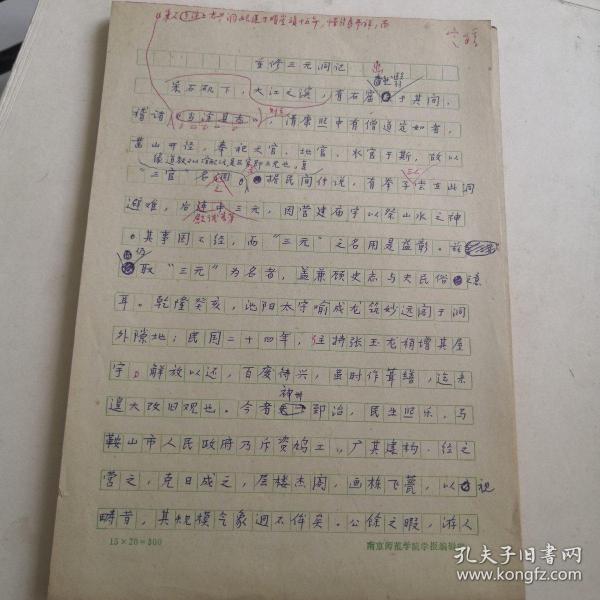 重修三元洞记
采石矶下,大江之滨,有石窟于其间,
稽诸《当涂县志》,清康熙中有僧道定如者,
凿山开径,奉祀天官、地官、水官于斯,故以
"三官"名洞。据民间传说,有举子尝在此洞
避难,后连中三元,因营建庙宇以祭山水之神
。其事固不经,而"三元"之名用是益彰。兹
仍取"三元"为名者,盖兼顾史志与夫民俗之意
耳。乾隆癸亥,池阳太守喻成龙筑妙远阁于洞
外隙地;民国二十四年,住持张玉龙稍增其屋
宇。解放以还,百废待兴,虽时作葺缮,迄未
遑大改旧观也。今者神州郅治,民生熙乐,马
鞍山市人民政府乃斥资鸠工,广其建构,经之
营之,克日成之,层楼杰阁,画栋飞甍,以视
畴昔,其规模气象迥不侔矣。公余之暇,游人
15×20=300
南京师范学院学报编辑部
孔夫子旧书网
kongfz.com